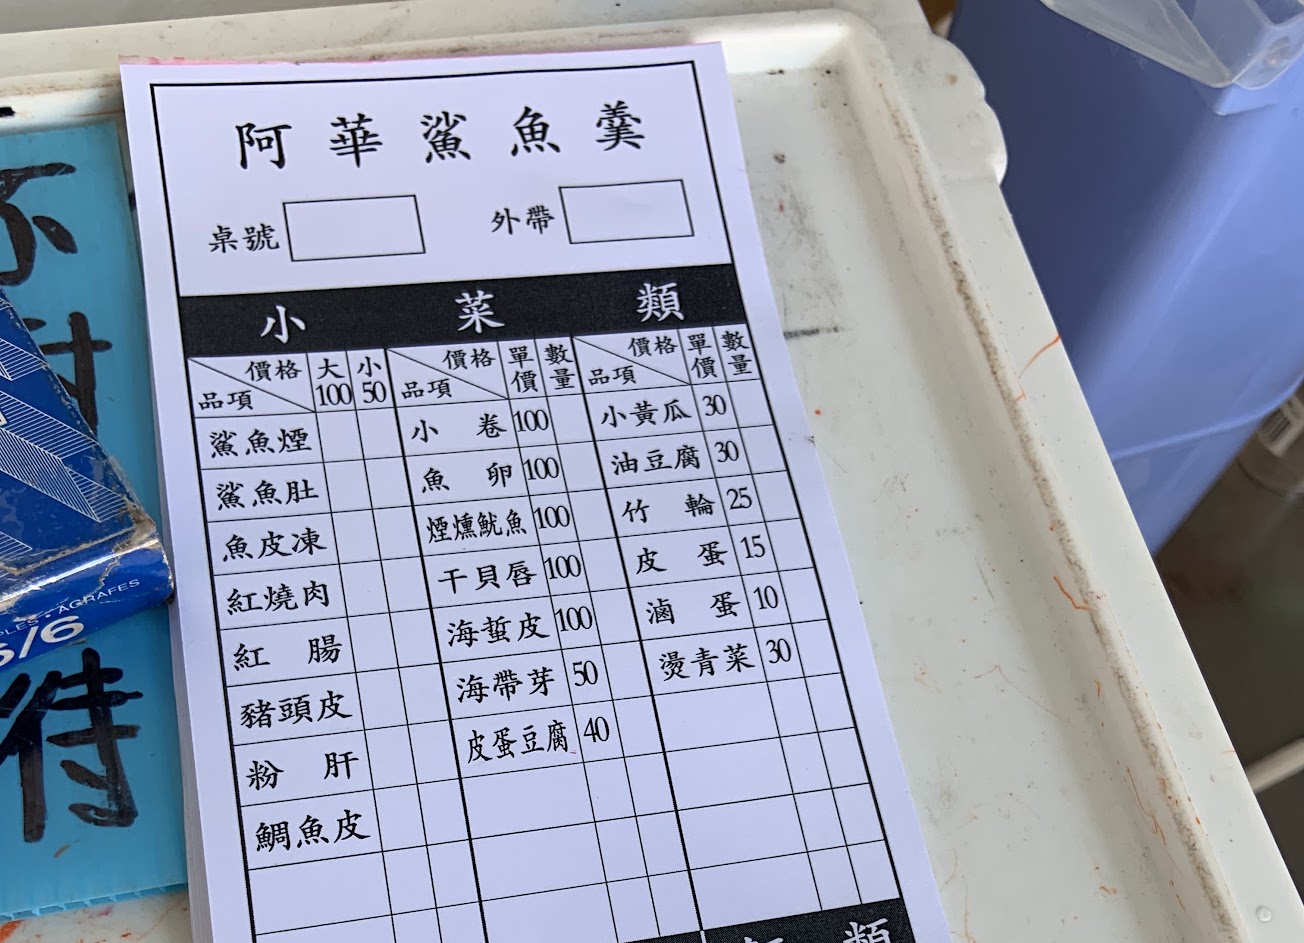 阿華鯊魚羹
桌號 外帶
小菜類
價格 品項 大100 小50 價格 品項 單價 數量 價格 品項 單價 數量
鯊魚煙 小卷 100 小黃瓜 30
鯊魚肚 魚卵 100 油豆腐 30
魚皮凍 煙燻魷魚 100 竹輪 25
紅燒肉 干貝唇 100 皮蛋 15
紅腸 海蜇皮 100 滷蛋 10
豬頭皮 海帶芽 50 燙青菜 30
粉肝 皮蛋豆腐 40
鯛魚皮
類
不
待
AGRAFES
/6